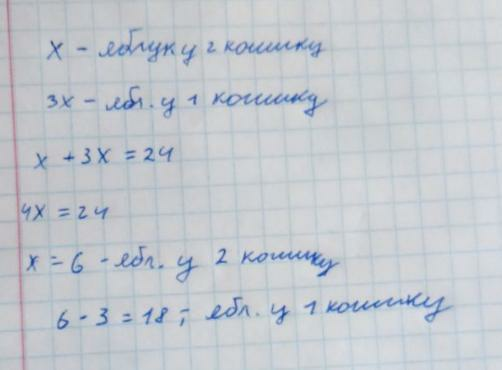 x - яблук у 2 кошику
3x - ябл. у 1 кошику
x + 3x = 24
4x = 24
x = 6 - ябл. у 2 кошику
6 · 3 = 18 - ябл. у 1 кошику